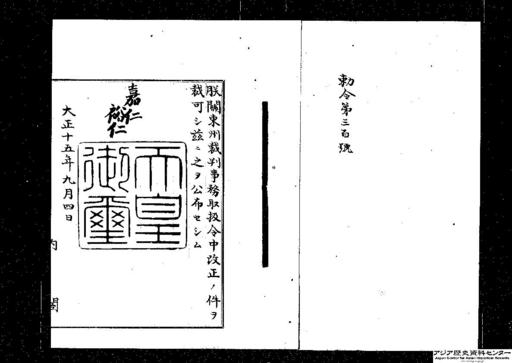 勅令第三百號
朕關東州裁判事務取扱令中改正ノ件ヲ
裁可シ茲ニ之ヲ公布セシム
嘉仁
裕仁
天皇
御璽
大正十五年九月四日
内閣
アジア歴史資料センター
Japan Center for Asian Historical Records